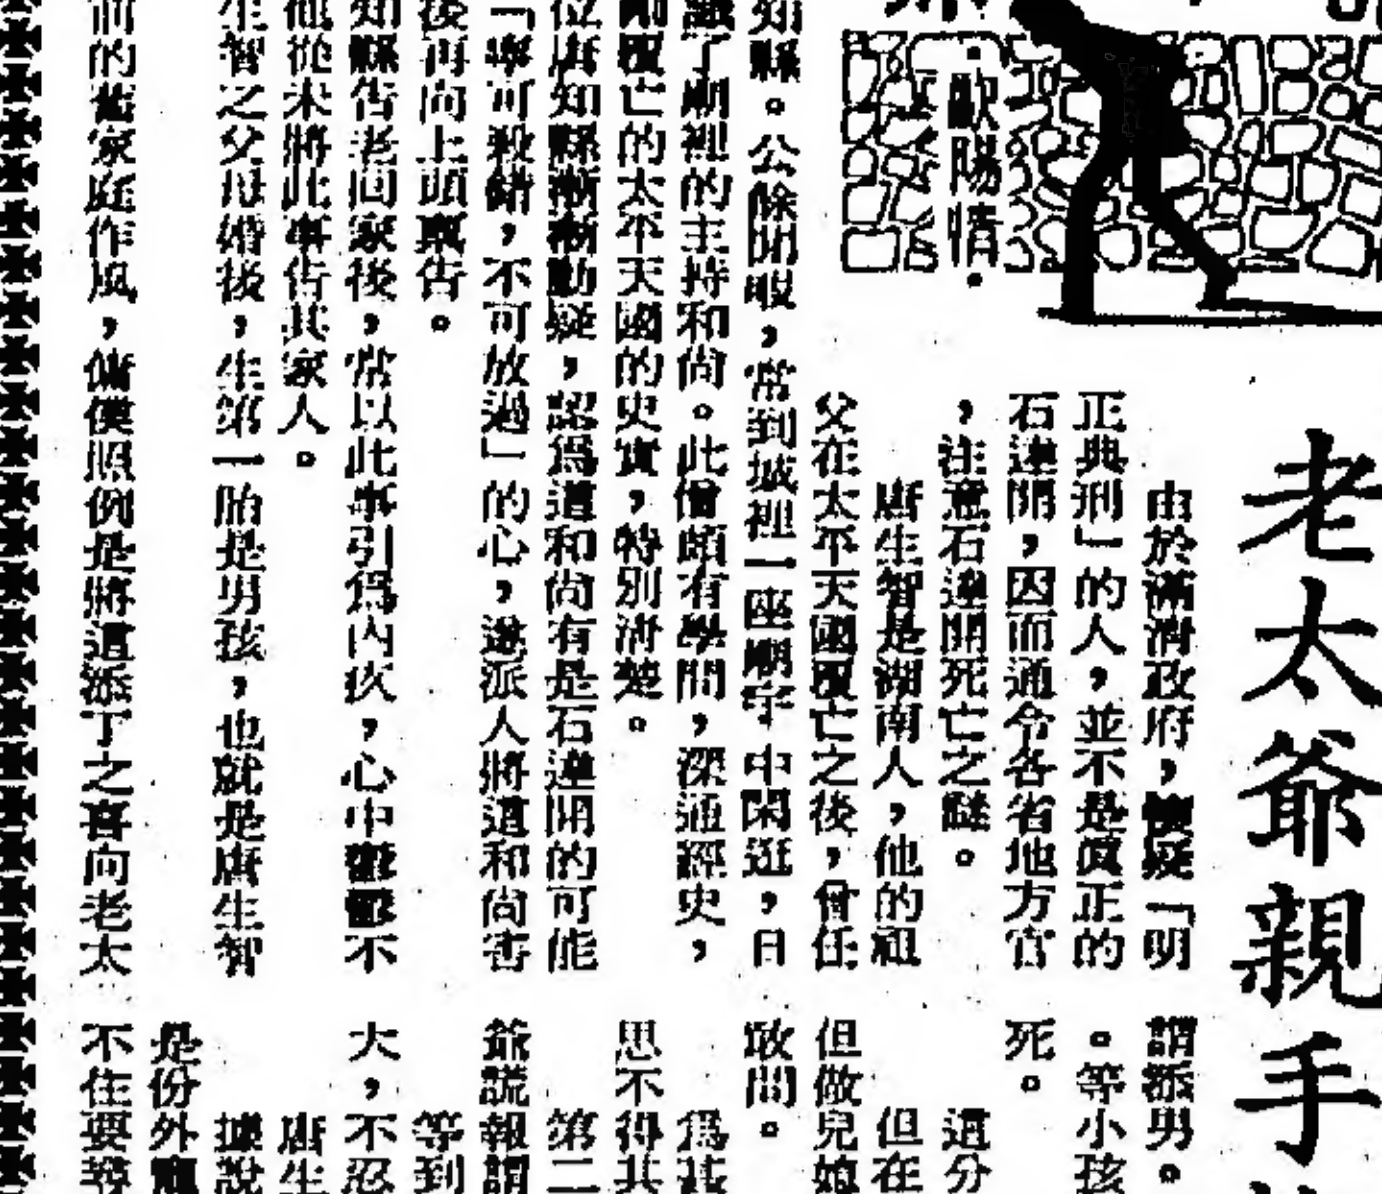 老太爺親手
·歐陽情·
由於滿清政府，懷疑「明
正典刑」的人，並不是眞正的
石達開，因而通令各省地方官
，注意石達開死亡之謎。
唐生智是湖南人，他的祖
父在太平天國覆亡之後，曾任
知縣。公餘閒暇，常到城裡一座廟宇中閑逛，日
識了廟裡的主持和尚。此僧頗有學問，深通經史，
剛覆亡的太平天國的史實，特別清楚。
位唐知縣漸漸動疑，認爲這和尚有是石達開的可能
「寧可殺錯，不可放過」的心，遂派人將這和尚害
後再向上頭稟告。
知縣告老回家後，常以此事引爲內疚，心中鬱鬱不
他從未將此事告其家人。
生智之父母婚後，生第一胎是男孩，也就是唐生智
前的舊家庭作風，傭僕照例是將這添丁之喜向老太
謂添男。
。等小孩
死。
這分
但在
但做兒媳
敢問。
爲甚
思不得其
第二
爺謊報謂
等到
大，不忍
唐生
據說
是份外寵
不住要